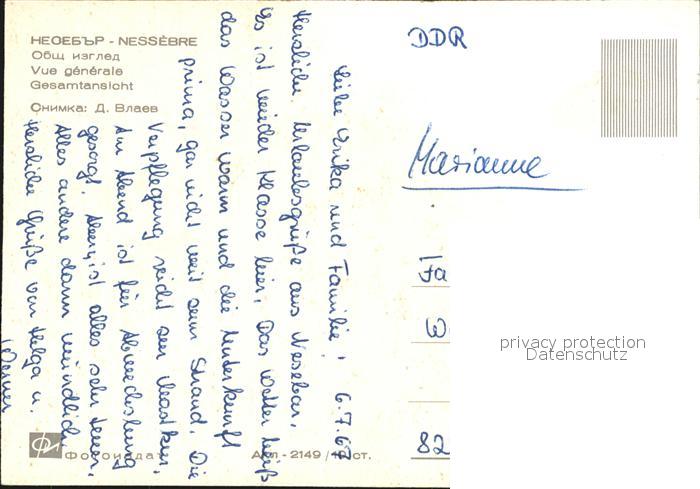 НЕСЕБЪР - NESSÈBRE
Общ изглед
Vue générale
Gesamtansicht
Снимка: Д. Влаев
Liebe Erika und Familie! 6.7.67
Herzliche Urlaubsgrüße aus Nesebar.
Es ist wieder Klasse hier. Das Wetter heiß
das Wasser warm und die Unterkunft
prima, gar nicht weit zum Strand. Die
Verpflegung reicht zur Mastkur.
Am Abend ist für Abwechslung
gesorgt. Aber, ist alles sehr teuer.
Alles andere dann mündlich.
Herzliche Grüße von Helga u.
Werner
DDR
Marianne
Fa
W
82
privacy protection
Datenschutz
Фотоиздат
2149